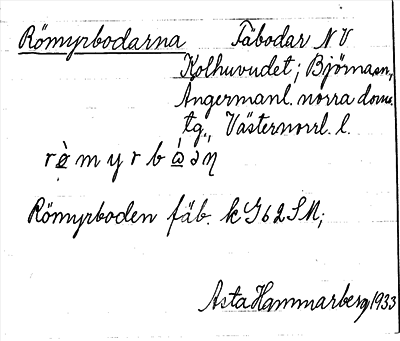 Römyrbodarna Fäbodar NV
Kolhuvudet; Björna sn,
Ångermanl. norra doms.
tg., Västernorrl. l.
rø̀myrbàdəη
Römyrboden fäb. k Gb 2 SM;
Asta Hammarberg 1933